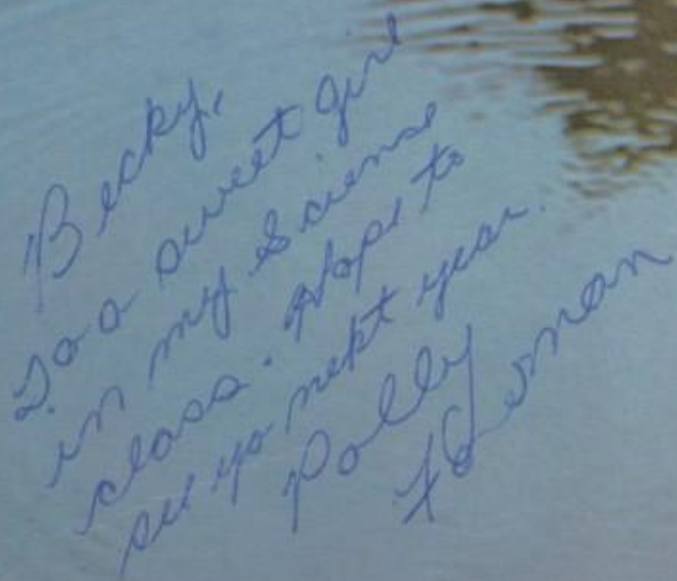 Becky,
To a sweet girl
in my Sciense
class. Hope to
see ya next year.
Polly